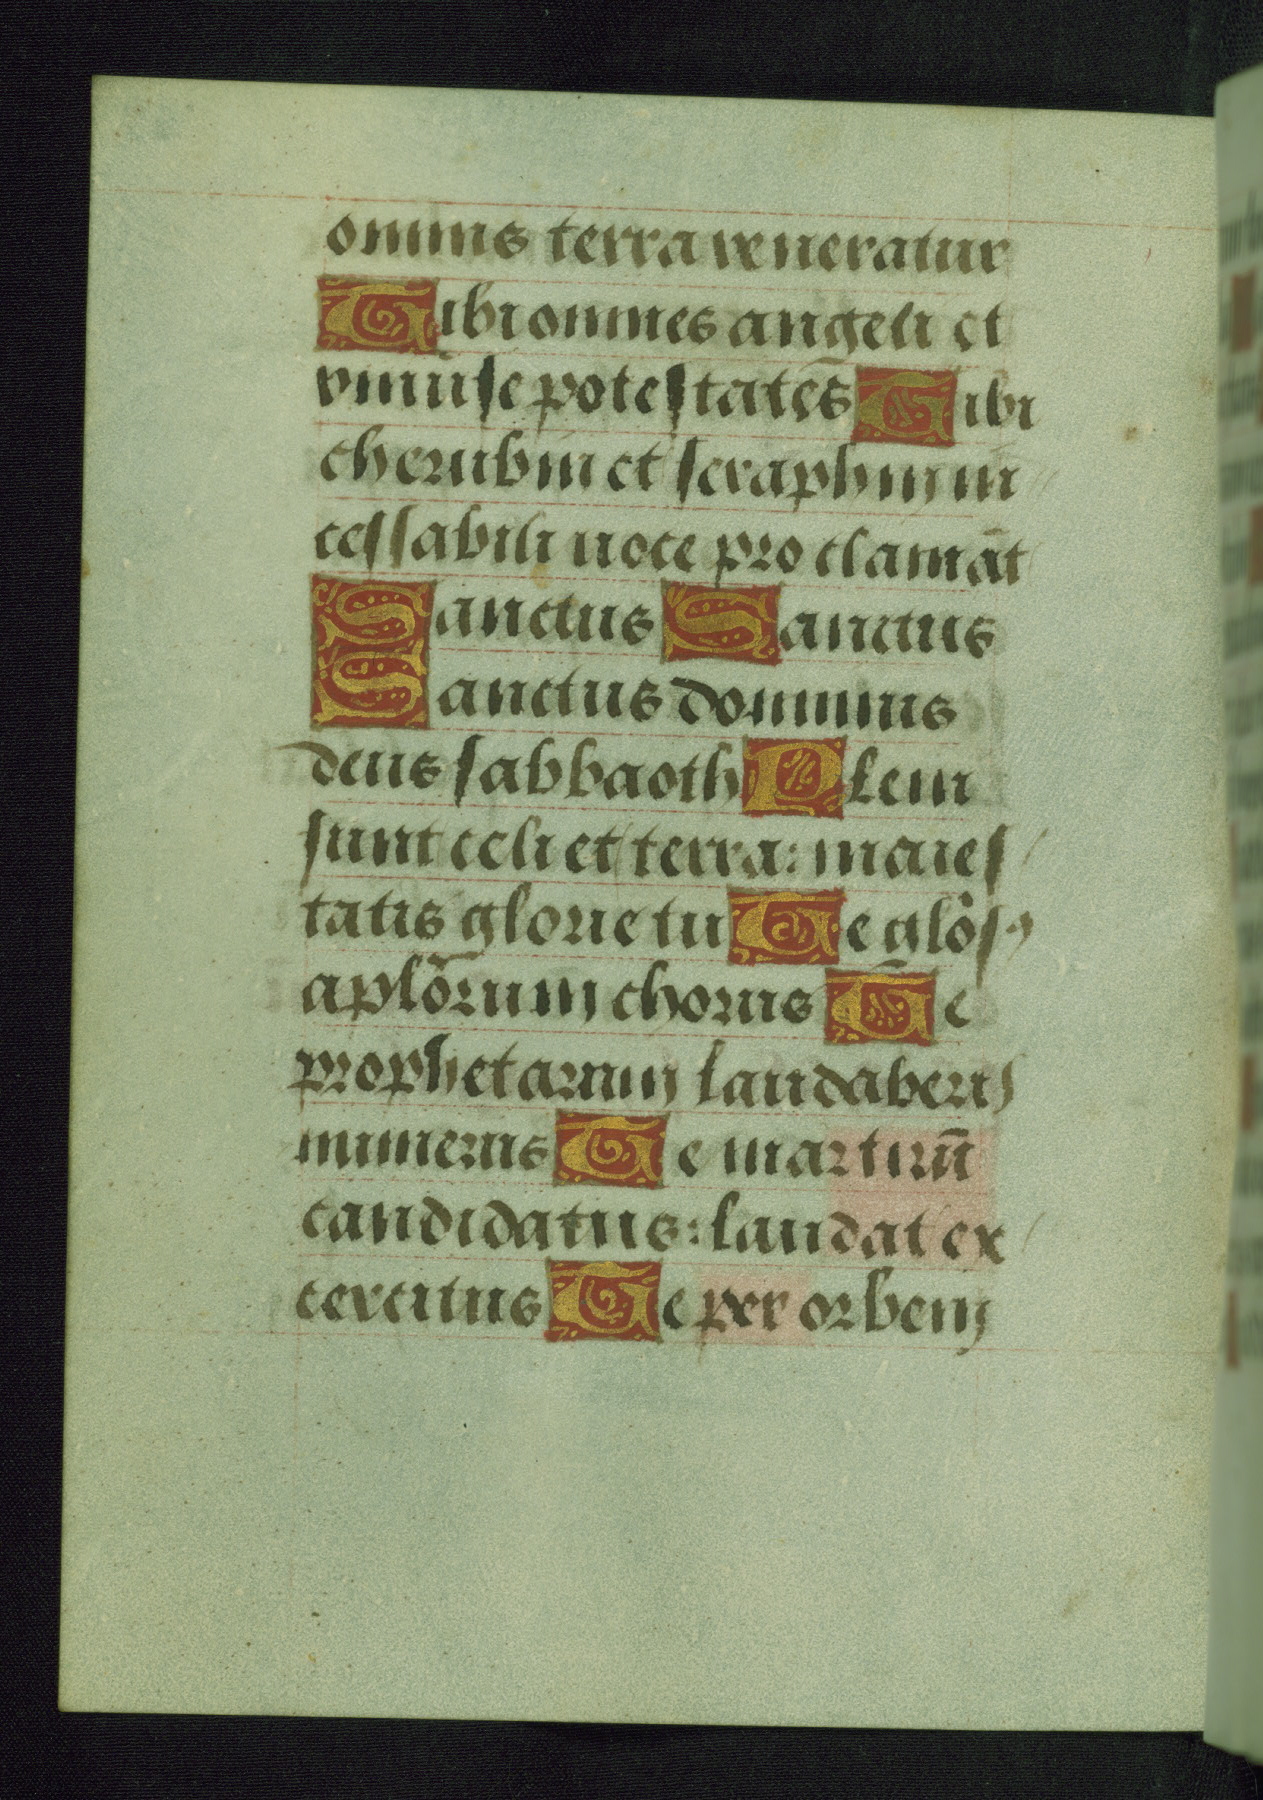 omnis terra veneratur
Tibi omnes angeli et
vniũse potestates̄ Tibi
cherubin et seraphim in
cessabili uoce proclamāt
Sanctus Sanctus
Sanctus dominus
deus sabbaoth Pleni
sunt celi et terra: maies
tatis glorie tu Te glōs
aplōrum chorus Te
prophetarum laudabeti
numerus Te martirū̄
candidatus: laudat ex
cercitus Te per orbem